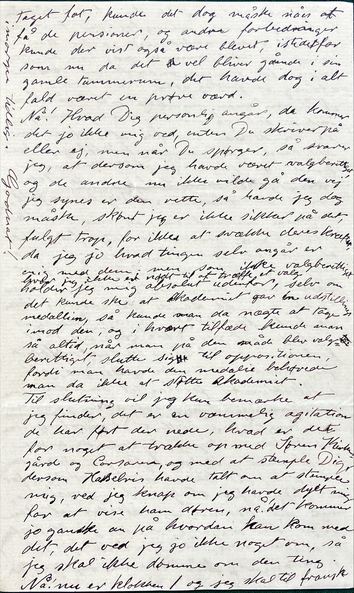 taget fat, kunde det dog måske nåes at
få de pensioner, og andre forbedringer
kunde der vist også være blevet, istedetfor
som nu da det vel bliver gående i sin
gamle tummerum, det havde dog i alt
fald været en prøve værd.
Nå! Hvad Dig personlig angår, da kommer
det jo ikke mig ved, enten Du skriver på
eller ej, men når Du spørger, så svarer
jeg, at dersom jeg havde været valgberettiget
og de andre nu ikke vilde gå den vej
jeg synes er den rette, så havde jeg dog
måske, skønt jeg er ikke sikker på det
fulgt trop, for ikke at svække deres
da jeg jo hvad tingen selv angår er
enig med dem, men som ikke valgberettiget
holder jeg mig absolut udenfor, selv om
det kunde ske at Akademiet gav en udstillings
medallien, så kunde man da nægte at tage
imod den, og i hvert tilfælde kunde man
så altid, når man på den måde blev valg-
berettiget, slutte sig til oppositionen,
fordi man havde den medalie behøvede
man da ikke at støtte Akademiet.
Til slutning vil jeg kun bemærke at
jeg finder, det er en væmmelig agitation
de har ført der nede, hvad er det
for noget at trække op med Søren Kirke-
gård og Corsaren, og med at stemple Dig,
dersom havde talt om at stemple
mig, ved jeg knap om jeg havde dyet mig
for at vise ham døren, nå, det kommer
jo ganske an på hvordan han kom med
det, det ved jeg jo ikke noget om, så
jeg skal ikke dømme om den ting.
Nå, nu er klokken 1 og jeg skal til fransk
i morgen
Godnat!